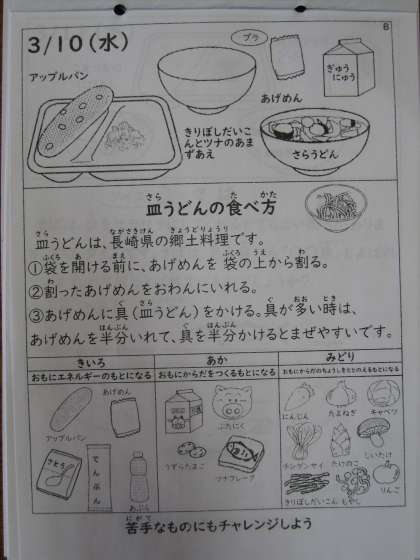 B
3/10(水)
プラ
アップルパン
ぎゅう
にゅう
あげめん
きりぼしだいこ
んとツナのあま
ずあえ
さらうどん
皿うどんの食べ方
さら た かた
さら ながさきけん きょうどりょうり
皿うどんは、長崎県の郷土料理です。
ふくろ あ まえ ふくろ うえ わ
①袋を開ける前に、あげめんを 袋の上から割る。
わ
②割ったあげめんをおわんにいれる。
ぐ さら ぐ おお とき
③あげめんに具(皿うどん)をかける。具が多い時は、
はんぶん ぐ はんぶん
あげめんを半分いれて、具を半分かけるとまぜやすいです。
きいろ あか みどり
おもにエネルギーのもとになる おもにからだをつくるもとになる おもにからだのちょうしをととのえるもとになる
アップルパン
あげめん
さとう
でんぷん
あぶら
ぶたにく
うずらたまご
ツナフレーク
にんじん
たまねぎ
キャベツ
チンゲンサイ
たけのこ
しいたけ
きりぼしだいこん
もやし
りんご
にがて
苦手なものにもチャレンジしよう